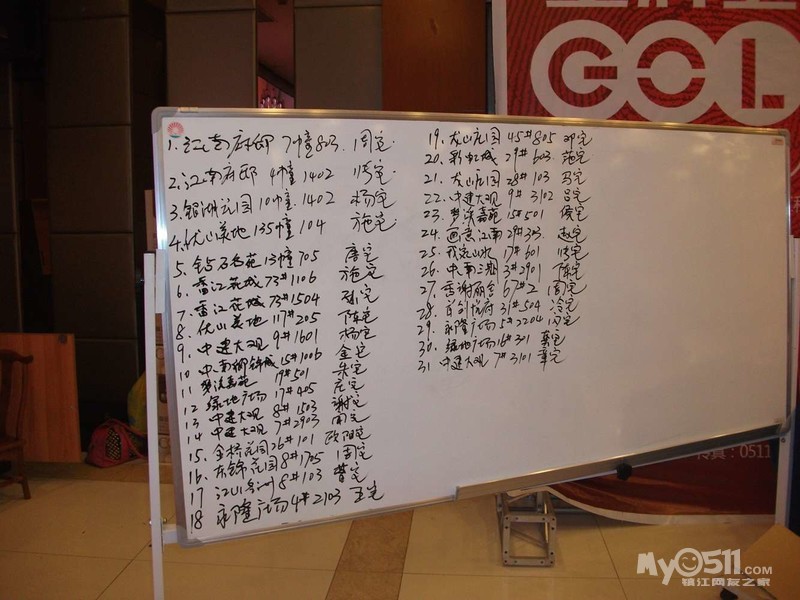 GOL
1. 江南府邸 7幢803 周宅
2. 江南府邸 4幢1402 陈宅
3. 银湖花园10幢1402 杨宅
4. 优山美地135幢104 施宅
5. 钻石名苑13幢705 唐宅
6. 香江花城73#1106 施宅
7. 香江花城73#1504 孙宅
8. 优山美地 117#205 陈宅
9. 中建大观 9#1601 杨宅
10 中南御锦城15#1006 金宅
11 梦溪嘉苑 19#501 朱宅
12 绿地广场 17#405 庄宅
13 中建大观 8#1503 谢宅
14 中建大观 7#2903 周宅
15. 金桥花园26#101 欧阳宅
16. 东锦花园8#1705 周宅
17 江山名洲8#103 曹宅
18 永隆广场4#2103 王宅
19. 龙山花园45#805 邓宅
20. 彩虹城 29#603 范宅
21. 龙山花园 28#103 马宅
22. 中建大观 9#3102 吕宅
23. 梦溪嘉苑 15#501 侯宅
24. 画意江南 29#303 赵宅
25. 我家山水 17#601
26. 中南 3#2901 陈宅
27. 香榭丽舍 67#2 周宅
28. 首创悦府 31#504 冷宅
29. 永隆广场5#2204 闵宅
30. 绿地广场16#301 龚宅
31 中建大观 7#3101 章宅
传真:0511
My0511.COM
镇江网友之家